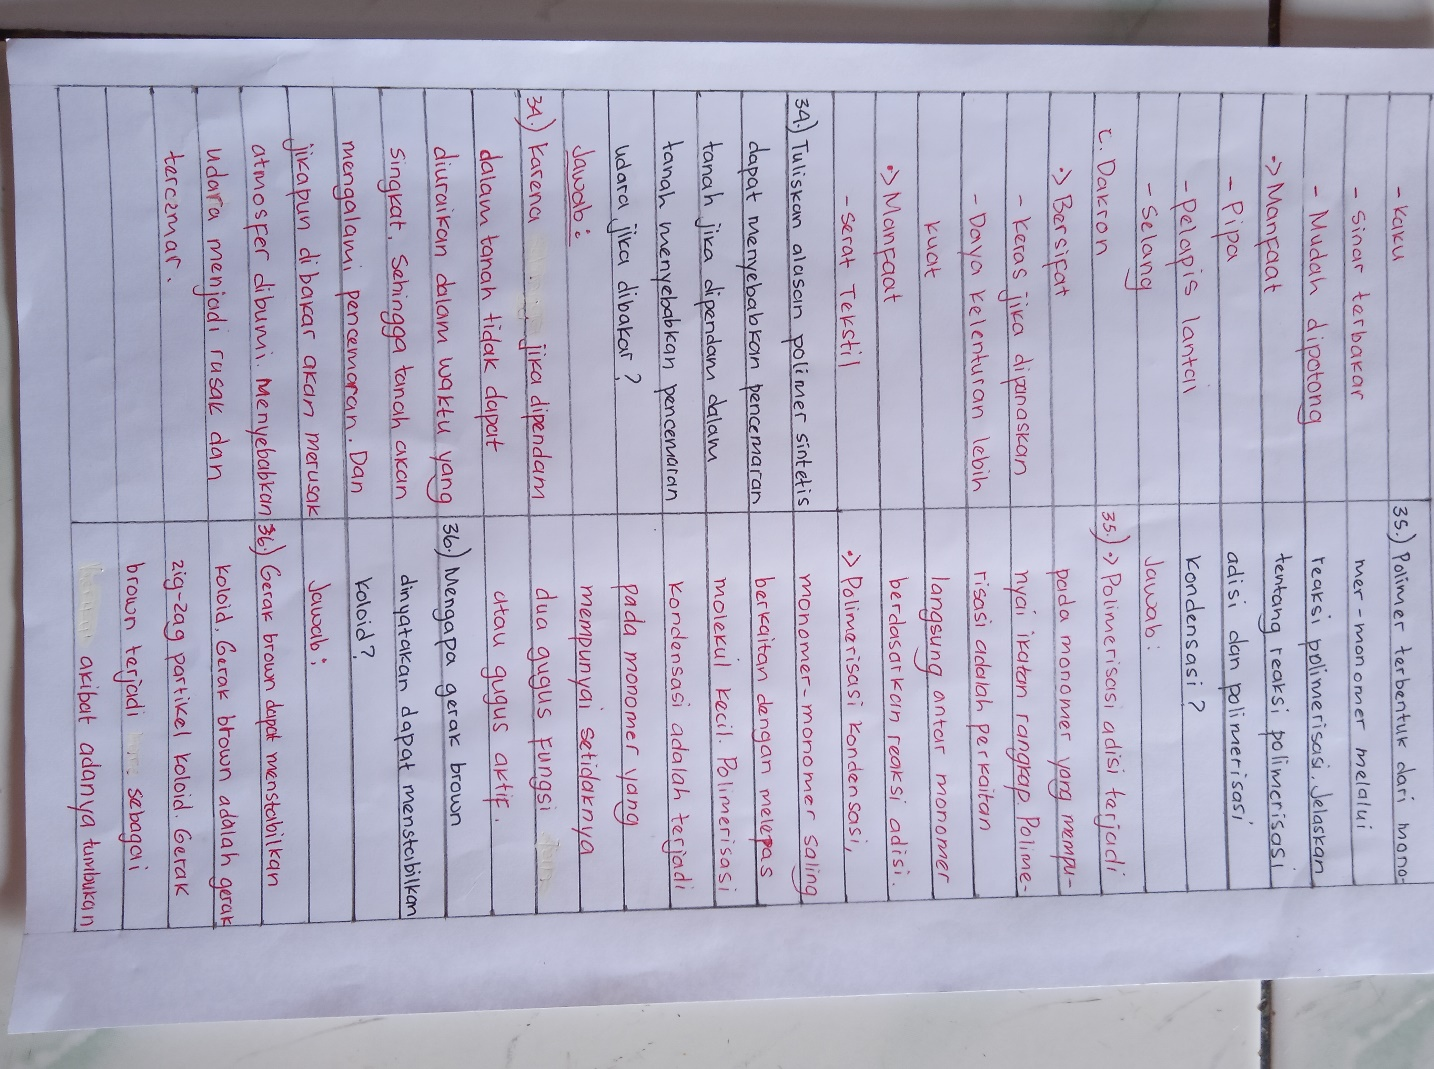 - Kaku
- Sinar terbakar
- Mudah dipotong
·> Manfaat
- Pipa
- Pelapis lantai
- Selang
c. Dakron
·> Bersifat
- Keras jika dipanaskan
- Daya kelenturan lebih
kuat
·> Manfaat
- Serat Tekstil
34.) Tuliskan alasan polimer sintetis
dapat menyebabkan pencemaran
tanah jika dipendam dalam
tanah menyebabkan pencemaran
udara jika dibakar?
Jawab:
34.) Karena jika dipendam
dalam tanah tidak dapat
diuraikan dalam waktu yang
singkat. Sehingga tanah akan
mengalami pencemaran. Dan
jikapun dibakar akan merusak
atmosper dibumi. Menyebabkan
udara menjadi rusak dan
tercemar.
35.) Polimer terbentuk dari mono-
mer-monomer melalui
reaksi polimerisasi. Jelaskan
tentang reaksi polimerisasi
adisi dan polimerisasi
kondensasi?
Jawab:
35.) ·> Polimerisasi adisi terjadi
pada monomer yang mempu-
nyai ikatan rangkap. Polime-
risasi adalah perkaitan
langsung antar monomer
berdasarkan reaksi adisi.
·> Polimerisasi kondensasi,
monomer-monomer saling
berkaitan dengan melepas
molekul kecil. Polimerisasi
kondensasi adalah terjadi
pada monomer yang
mempunyai setidaknya
dua gugus fungsi
atau gugus aktif.
36.) Mengapa gerak brown
dinyatakan dapat menstabilkan
koloid?
Jawab:
36.) Gerak brown dapat menstabilkan
koloid. Gerak brown adalah gerak
zig-zag partikel koloid. Gerak
brown terjadi sebagai
akibat adanya tumbukan